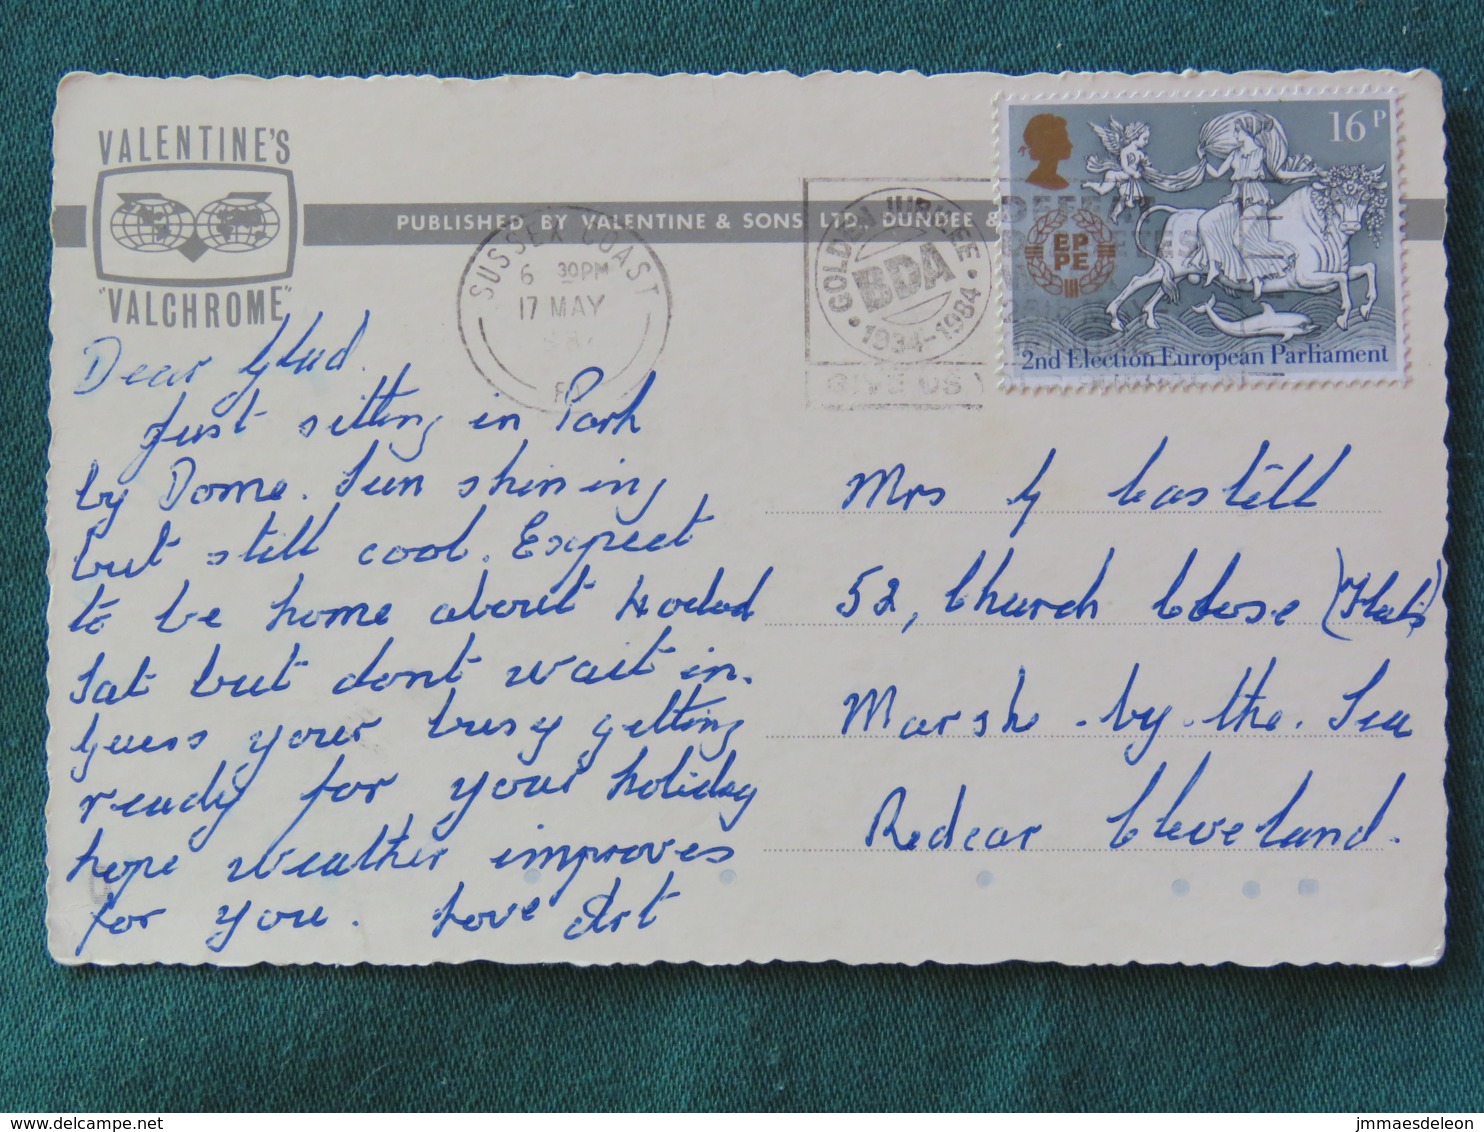 VALENTINE'S
"VALCHROME"
PUBLISHED BY VALENTINE & SONS, LTD., DUNDEE &
SUSSEX COAST
6 30PM
17 MAY
GOLDEN JUBILEE
BDA
1934-1984
GIVE US
16P
EP
PE
2nd Election European Parliament
Dear Glad.
Just sitting in Park
by Dome. Sun shining
but still cool. Expect
to be home about
Sat but dont wait in.
Guess your busy getting
ready for your holiday
hope weather improves
for you. Love Art
Mrs G Castill
52, Church Close (Flats)
Marsh-by-the-Sea
Redcar Cleveland.
delcampe.net
jmmaesdeleon